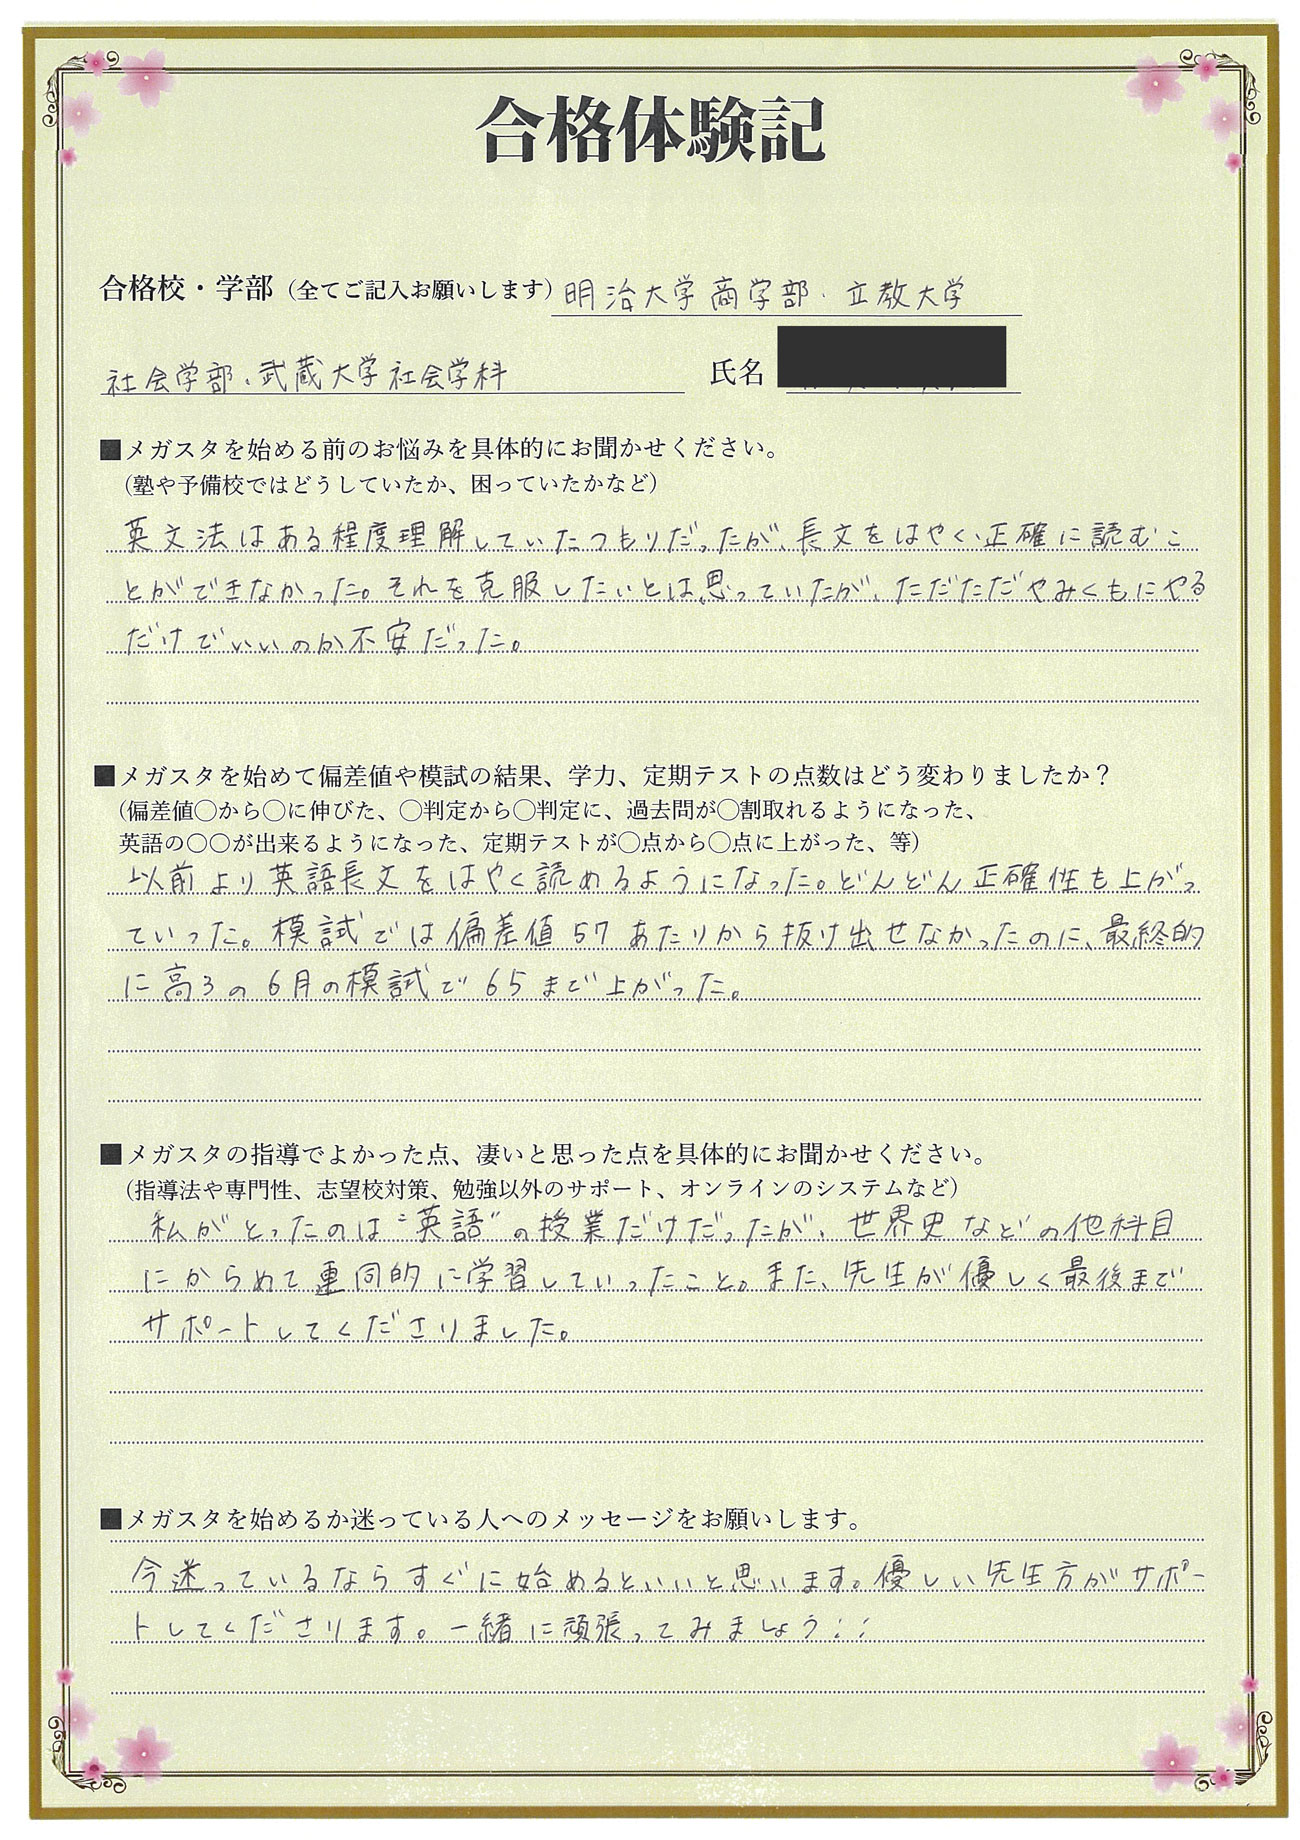 合格体験記
合格校・学部（全てご記入お願いします）明治大学商学部・立教大学
社会学部・武蔵大学社会学科 氏名
■メガスタを始める前のお悩みを具体的にお聞かせください。
（塾や予備校ではどうしていたか、困っていたかなど）
英文法はある程度理解していたつもりだったが、長文をはやく、正確に読むこ
とができなかった。それを克服したいとは思っていたが、ただただやみくもにやる
だけでいいのか不安だった。
■メガスタを始めて偏差値や模試の結果、学力、定期テストの点数はどう変わりましたか？
（偏差値〇から〇に伸びた、〇判定から〇判定に、過去問が〇割取れるようになった、
英語の〇〇が出来るようになった、定期テストが〇点から〇点に上がった、等）
以前より英語長文をはやく読めるようになった。どんどん正確性も上がっ
ていった。模試では偏差値57あたりから抜け出せなかったのに、最終的
に高3の6月の模試で65まで上がった。
■メガスタの指導でよかった点、凄いと思った点を具体的にお聞かせください。
（指導法や専門性、志望校対策、勉強以外のサポート、オンラインのシステムなど）
私がとったのは“英語”の授業だけだったが、世界史などの他科目
にからめて重同的に学習していったこと。また、先生が優しく最後まで
サポートしてくださりました。
■メガスタを始めるか迷っている人へのメッセージをお願いします。
今迷っているならすぐに始めるといいと思います。優しい先生方がサポー
トしてくださります。一緒に頑張ってみましょう！！